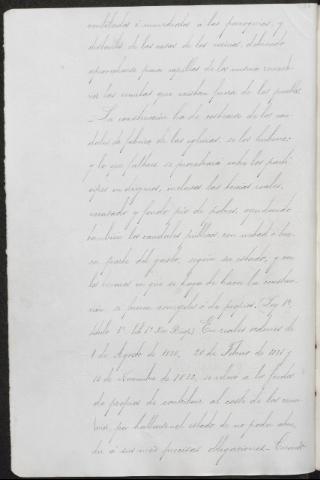 ventilados é inmediatos á las parroquias, y
distantes de las casas de los vecinos, debiendo
aprovecharse para capillas de los mismos cemente-
rios las ermitas que existan fuera de los pueblos.
La construcción ha de costearse de los cau-
dales de fábrica de las iglesias, si los hubiere;
y lo que faltare se prorrateará entre los partí-
cipes en diezmos, inclusas las tercias reales,
escusado y fondo pío de pobres, ayudando
también los caudales públicos con mitad ó terce-
ra parte del gasto, según su estado, y con
los terrenos en que se haya de hacer la construc-
ción, si fueren concejiles ó de propios. Ley 1ª
título 3º, lib. 1º Nov. Recop.) En reales órdenes de
de Agosto de de Febrero de y
de Noviembre de se relevó á los fondos
de propios de contribuir al coste de los cemen-
terios, por hallarse en estado de no poder aten-
der á sus más precisas obligaciones. Cuando